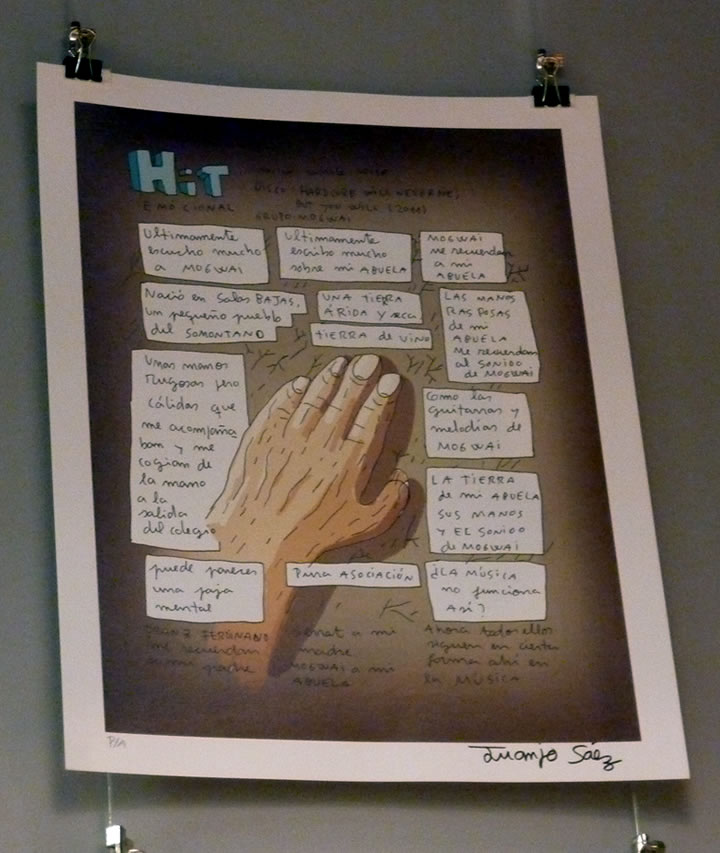 HiT
EMOCIONAL
DISCO: HARDCORE WILL NEVER DIE,
BUT YOU WILL (2011)
GRUPO: MOGWAI
Ultimamente
escucho mucho
a MOGWAI
Ultimamente
escribo mucho
sobre mi ABUELA
MOGWAI
me recuerdan
a mi
ABUELA
Nació en Salas BAJAS,
un pequeño pueblo
del SOMONTANO
UNA TIERRA
ÁRIDA y seca
TIERRA de VINO
LAS MANOS
RASPOSAS
de mi
ABUELA
Me recuerdan
al SONIDO
de MOGWAI
Unas manos
rugosas pero
cálidas que
me acompaña
ban y me
cogian de
la mano
a la
salida
del colegio
Como las
guitarras y
melodias de
MOGWAI
LA TIERRA
de mi ABUELA
SUS MANOS
Y EL SONIDO
de MOGWAI
puede parecer
una paja
mental
Pura ASOCIACIÓN
¿LA MÚSICA
no funciona
Así?
FRANZ FERDINAND
me recuerdan
a mi padre
Serrat a mi
madre
MOGWAI a mi
ABUELA
Ahora todos ellos
siguen en cierta
forma ahi en
la MÚSICA
P/A
Juanjo Sáez